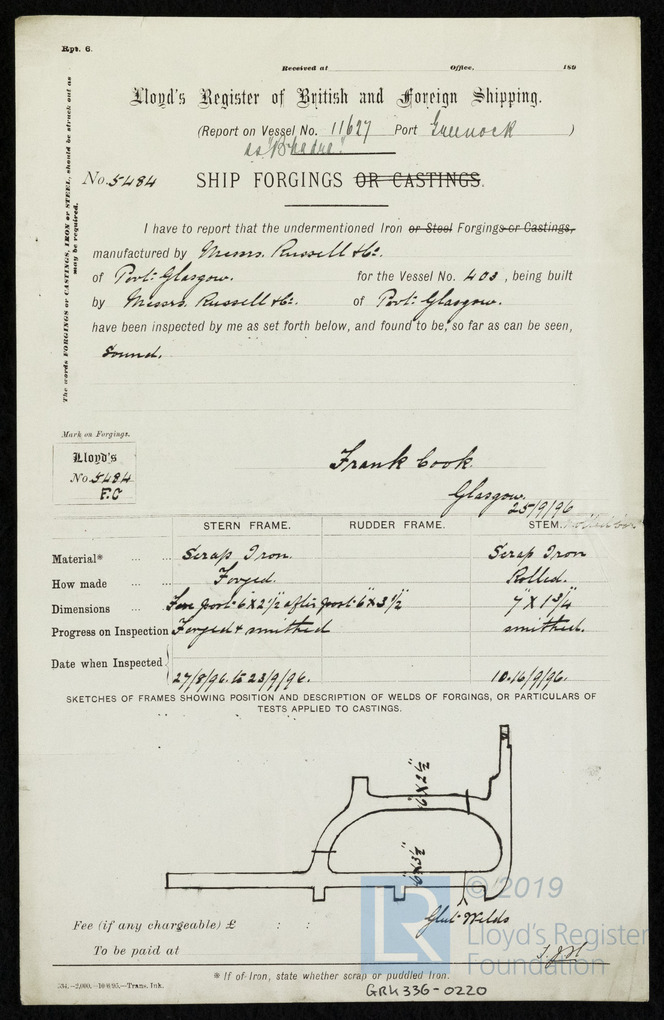 Rpt. 6.
Received at Office, 189
Lloyd's Register of British and Foreign Shipping.
(Report on Vessel No. 11627 Port Greenock )
ss
No. 5484 SHIP FORGINGS OR CASTINGS.
The words FORGINGS or CASTINGS, IRON or STEEL, should be struck out as may be required.
I have to report that the undermentioned Iron or Steel Forgings or Castings,
manufactured by Messrs. Russell & Co.
of Port-Glasgow. for the Vessel No. 403, being built
by Messrs. Russell & Co. of Port-Glasgow.
have been inspected by me as set forth below, and found to be, so far as can be seen,
sound.
Mark on Forgings.
Lloyd's
No. 5484
F.C
Frank Cook.
Glasgow.
25/9/96
STERN FRAME. RUDDER FRAME. STEM. rolled bar
Material* Scrap Iron. Scrap Iron
How made Forged. Rolled.
Dimensions Fore post 6"x2½" after post 6"x3½" 7"x1¾"
Progress on Inspection Forged & smithed smithed.
Date when Inspected 27/8/96. to 23/9/96. 10.16/9/96.
SKETCHES OF FRAMES SHOWING POSITION AND DESCRIPTION OF WELDS OF FORGINGS, OR PARTICULARS OF
TESTS APPLIED TO CASTINGS.
6"x2½"
6"x3½"
Glut-Welds
Fee (if any chargeable) £ : :
To be paid at
* If of Iron, state whether scrap or puddled Iron.
Trans. Ink.
GRK336-0220
LR
© 2019
Lloyd's Register
Foundation